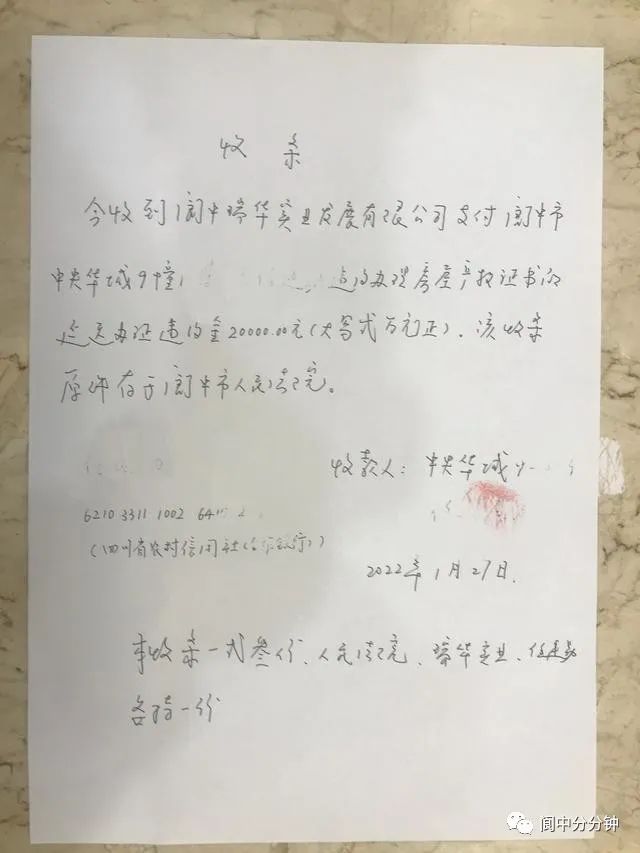 收 条
今收到阆中瑞华实业发展有限公司支付阆中市
中央华城9幢 违约办理房屋产权证书的
延迟办证违约金20000.00元(大写贰万元正)。该收条
原件存于阆中市人民法院。
收款人:中央华城9-
6210 3311 1002 641
(四川省农村信用社(合作银行))
2022年1月27日.
本收条一式叁份、人民法院、瑞华实业、任
各持一份
阆中分分钟